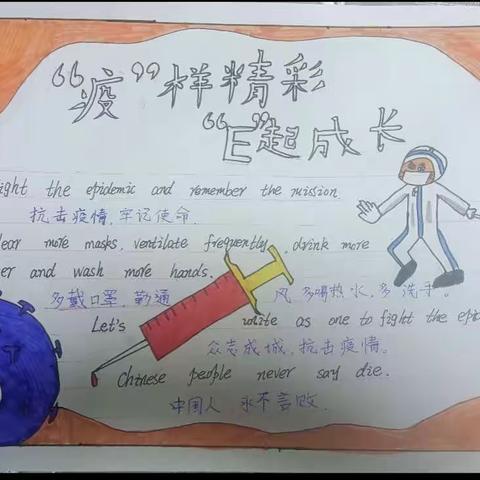 “疫”样精彩
“E”起成长
ight the epidemic and remember the mission.
抗击疫情,牢记使命.
ear more masks, ventilate frequently, drink more
er and wash more hands.
多戴口罩,勤通风,多喝热水,多洗手。
Let's unite as one to fight the epid
众志成城,抗击疫情。
Chinese people never say die.
中国人 永不言败.